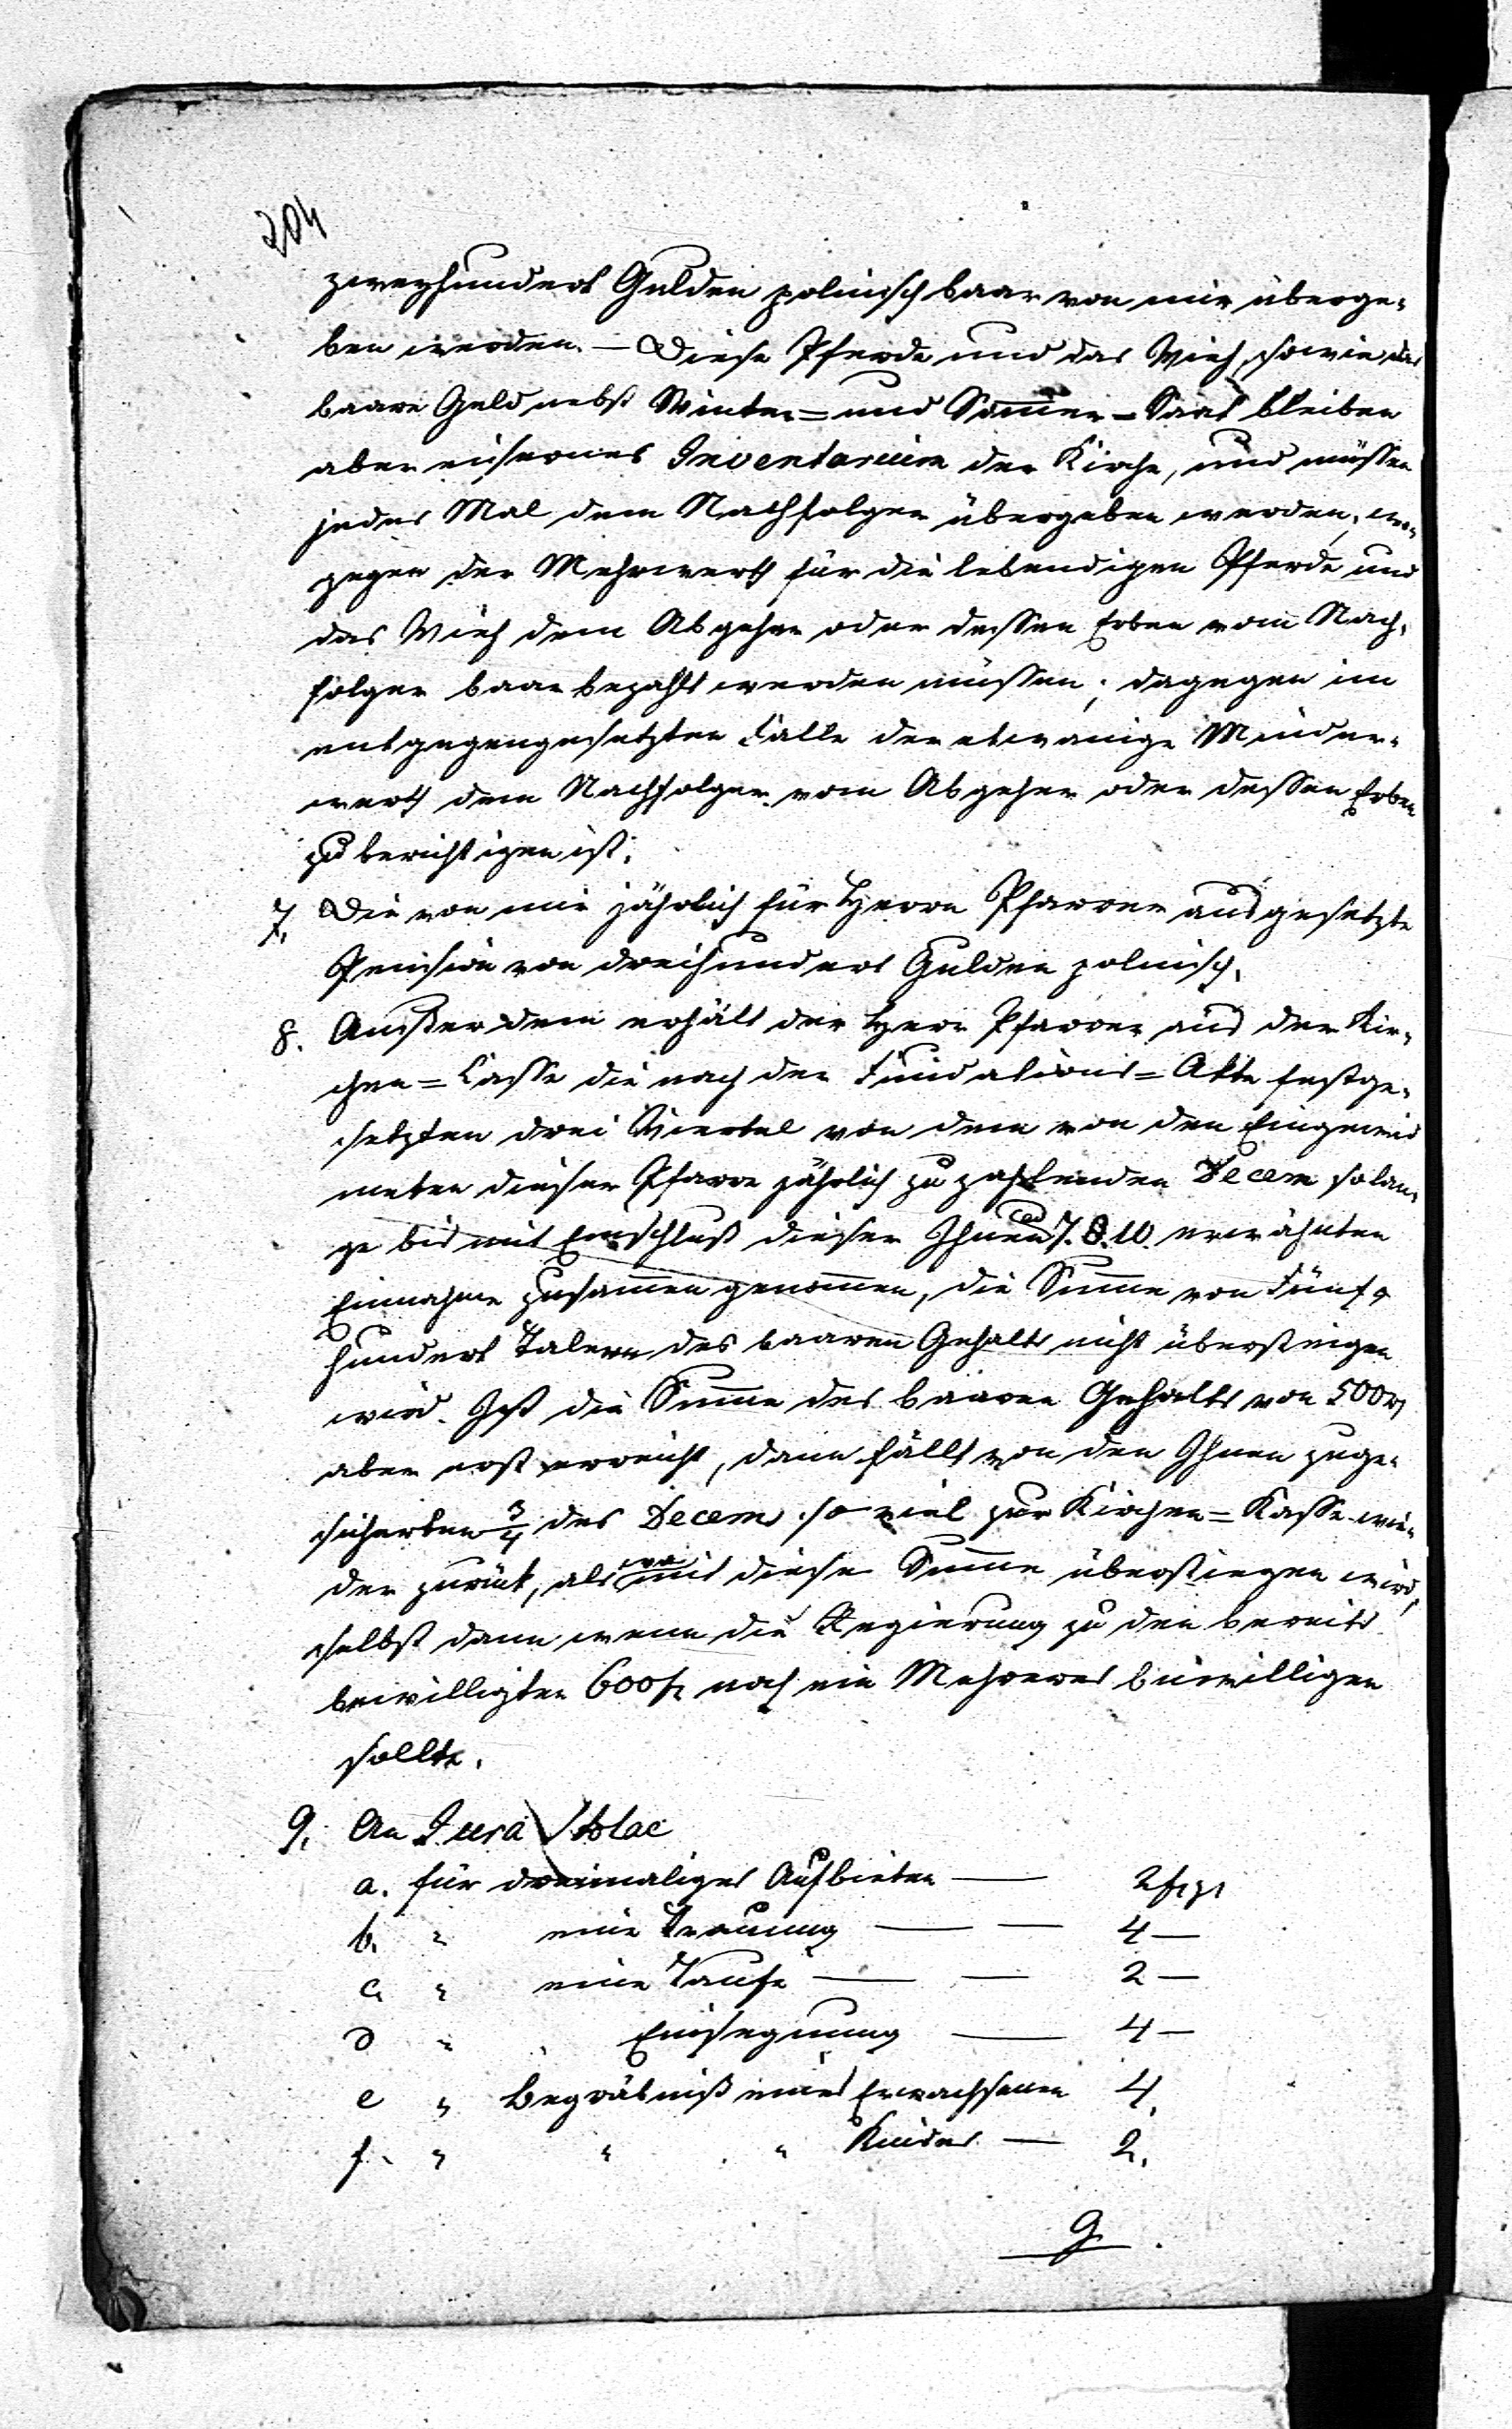 204
zweyhundert Gulden polnisch baar von mir überge-
ben werden. — Diese Pferde und das Vieh, sowie das
baare Geld nebst Winter= und Sommer=Saat bleiben
aber eisernes Inventarium der Kirche, und müssen
jedes Mal dem Nachfolger übergeben werden, wo-
gegen der Mehrwerth für die lebendigen Pferde und
das Vieh dem Abgeher oder dessen Erben vom Nach-
folger baar bezahlt werden müssen; dagegen im
entgegengesetzten Falle der etwanige Minder-
werth dem Nachfolger vom Abgeher oder dessen Erben
zu berichtigen ist.
7. Die von mir jährlich für Herrn Pfarrer ausgesetzte
Pension von dreihundert Gulden polnisch.
8. Ausserdem erhält der Herr Pfarrer aus der Kir-
chen=Casse die nach der Fundations=Akte festge-
setzten drei Viertel von dem von den Eingewid
meten dieser Pfarre jährlich zu zahlenden Decem solan-
ge bis mit Einschluß dieser Ihnen 7. 8. 10. erwähnten
Einnahme zusammen genommen, die Summe von Fünf-
hundert Talern des baaren Gehalts nicht übersteigen
wird. Ist die Summe des baaren Gehalts von 500 rt
aber erst erreicht, dann fällt von den Ihnen zuge-
sicherten 3/4 des Decems so viel zur Kirchen=Kasse wie-
der zurück, als womit diese Summe überstiegen wird,
selbst dann wenn die Regierung zu den bereits
bewilligten 600 f noch ein Mehreres bewilligen
sollte.
9. An Jura Stolae
a. für dreimaliges Aufbieten — 2 f. p.
b. " eine Trauung — — 4 —
c. " eine Taufe — — 2 —
d " Einsegnung — 4 —
e " Begräbniß eines Erwachsenen 4.
f. " " " Kindes — 2.
g.